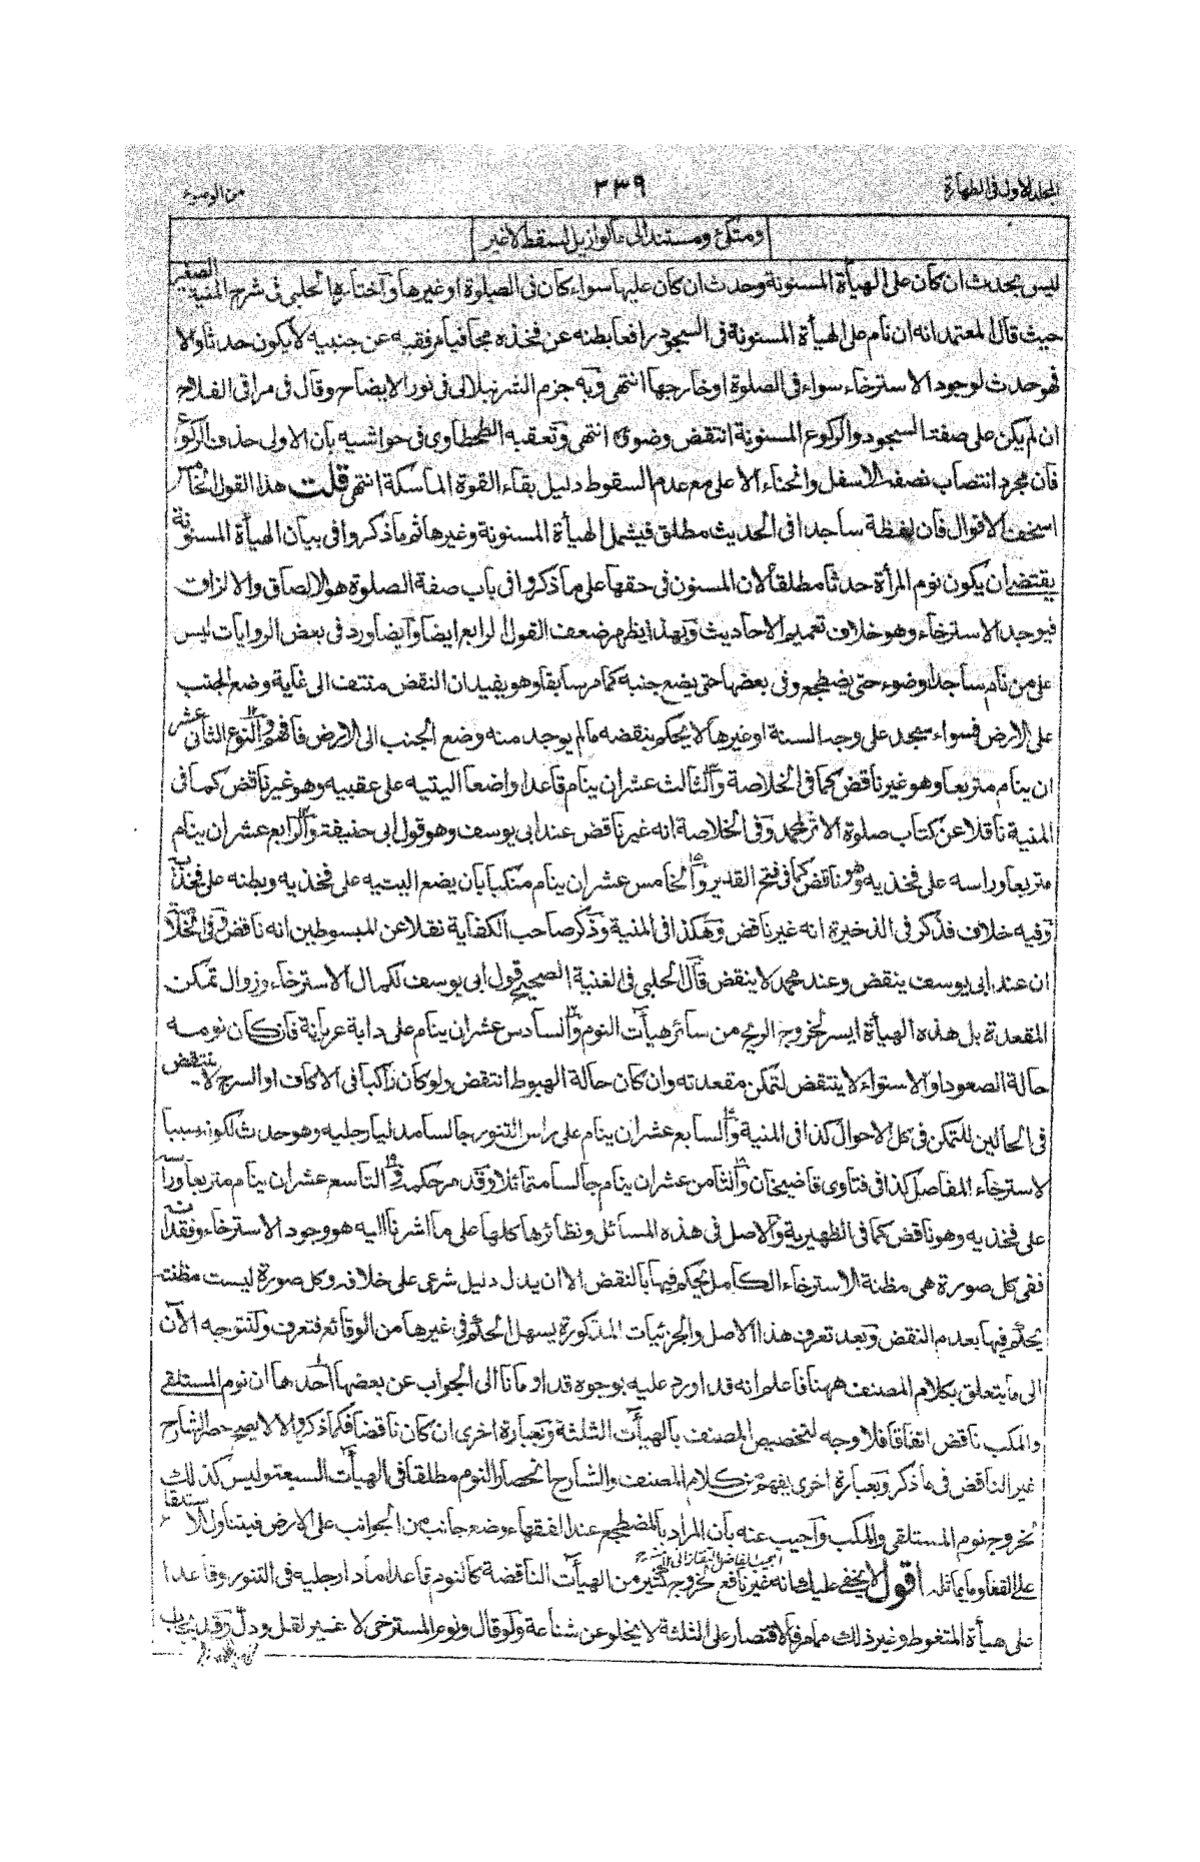 المجلد الاول فى الطهارة
٣٣٩
من الوضوء
ومتكئ ومستند الى ما لو ازيل لسقط لا غير
ليس بحدث ان كان على الهيأة المسنونة وحدث ان كان عليها سواء كان فى الصلوة او غيرها واختاره الحلبى فى شرح المنية الصغير
حيث قال المعتمد انه ان نام على الهيأة المسنونة فى السجود رافعا بطنه عن فخذه مجافيا مرفقيه عن جنبيه لا يكون حدثا والا
فهو حدث لوجود الاسترخاء سواء فى الصلوة او خارجها انتهى وبه جزم الشرنبلالى فى نور الايضاح وقال فى مراقى الفلاح
ان لم يكن على صفة السجود والركوع المسنونة انتقض وضوئه انتهى وتعقبه الطحطاوى فى حواشيه بان الاولى حذف الركوع
فان مجرد انتصاب نصفه الاسفل وانحناء الاعلى مع عدم السقوط دليل بقاء القوة الماسكة انتهى قلت هذا القول الخامس
اسخف الاقوال فان لفظة ساجدا فى الحديث مطلق فيشمل الهيأة المسنونة وغيرها ثم ما ذكروا فى بيان الهيأة المسنونة
يقتضى ان يكون نوم المرأة حدثا مطلقا لان المسنون فى حقها على ما ذكروا فى باب صفة الصلوة هو الالصاق والالزاق
فيوجد الاسترخاء وهو خلاف تعميم الاحاديث وبهذا يظهر ضعف القول الرابع ايضا وايضا ورد فى بعض الروايات ليس
على من نام ساجدا وضوء حتى يضطجع وفى بعضها حتى يضع جنبه كما مر سابقا وهو يفيد ان النقض منتف الى غاية وضع الجنب
على الارض فسواء سجد على وجه السنة او غيرها لا يحكم بنقضه ما لم يوجد منه وضع الجنب الى الارض فافهم والنوع الثانى عشر
ان ينام متربعا وهو غير ناقض كما فى الخلاصة والثالث عشر ان ينام قاعدا واضعا اليتيه على عقبيه وهو غير ناقض كما فى
المنية ناقلا عن كتاب صلوة الاثر لمحمد وفى الخلاصة انه غير ناقض عند ابى يوسف وهو قول ابى حنيفة والرابع عشر ان ينام
متربعا وراسه على فخذيه وهو ناقض كما فى فتح القدير والخامس عشر ان ينام منكبا بان يضع اليتيه على فخذيه وبطنه على فخذيه
وفيه خلاف فذكر فى الذخيرة انه غير ناقض وهكذا فى المنية وذكر صاحب الكفاية نقلا عن المبسوطين انه ناقض وفى الخلاصة
ان عند ابى يوسف ينقض وعند محمد لا ينقض قال الحلبى فى الغنية الصحيح قول ابى يوسف لكمال الاسترخاء وزوال تمكن
المقعدة بل هذه الهيأة ايسر لخروج الريح من سائر هيأت النوم والسادس عشر ان ينام على دابة عريانة فان كان نومه
حالة الصعود او الاستواء لا ينتقض لتمكن مقعدته وان كان حالة الهبوط انتقض ولو كان راكبا فى الاكاف او السرج لا ينتقض
فى الحالين للتمكن فى كل الاحوال كذا فى المنية والسابع عشر ان ينام على راس التنور جالسا مدليا رجليه وهو حدث لكونه سببا
لاسترخاء المفاصل كذا فى فتاوى قاضيخان والثامن عشر ان ينام جالسا متمائلا وقد مر حكمه والتاسع عشر ان ينام متربعا وراسه
على فخذيه وهو ناقض كما فى الظهيرية والاصل فى هذه المسائل ونظائرها كلها على ما اشرنا اليه هو وجود الاسترخاء وفقدانه
ففى كل صورة هى مظنة الاسترخاء الكامل يحكم فيها بالنقض الا ان يدل دليل شرعى على خلافه وكل صورة ليست مظنته
يحكم فيها بعدم النقض وبعد تعرف هذا الاصل والجزئيات المذكورة يسهل الحكم فى غيرها من الوقائع فتعرف ولنتوجه الآن
الى ما يتعلق بكلام المصنف ههنا فاعلم انه قد اورد عليه بوجوه قد اومأنا الى الجواب عن بعضها احدها ان نوم المستلقى
والمكب ناقض اتفاقا فلا وجه لتخصيص المصنف بالهيأت الثلثة وبعبارة اخرى ان كان ناقضا فكما ذكر والا لا يصح حصر الشارح
غير الناقض فى ما ذكر وبعبارة اخرى يفهم من كلام المصنف والشارح انحصار النوم مطلقا فى الهيأت السبعة وليس كذلك
لخروج نوم المستلقى والمكب واجيب عنه بان المراد بالمضطجع عند الفقهاء وضع جانب من الجوانب على الارض فيتناول الاستلقاء
على القفا وما يماثله اقول لا يخفى عليك انه غير نافع لخروج كثير من الهيأت الناقضة كالنوم قاعدا مادا رجليه فى التنور وقاعدا
على هيأة المتغوط وغير ذلك مما مر فالاقتصار على الثلثة لا يخلو عن شناعة ولو قال ونوم المسترخى لا غير لقل ودل وقد يجاب